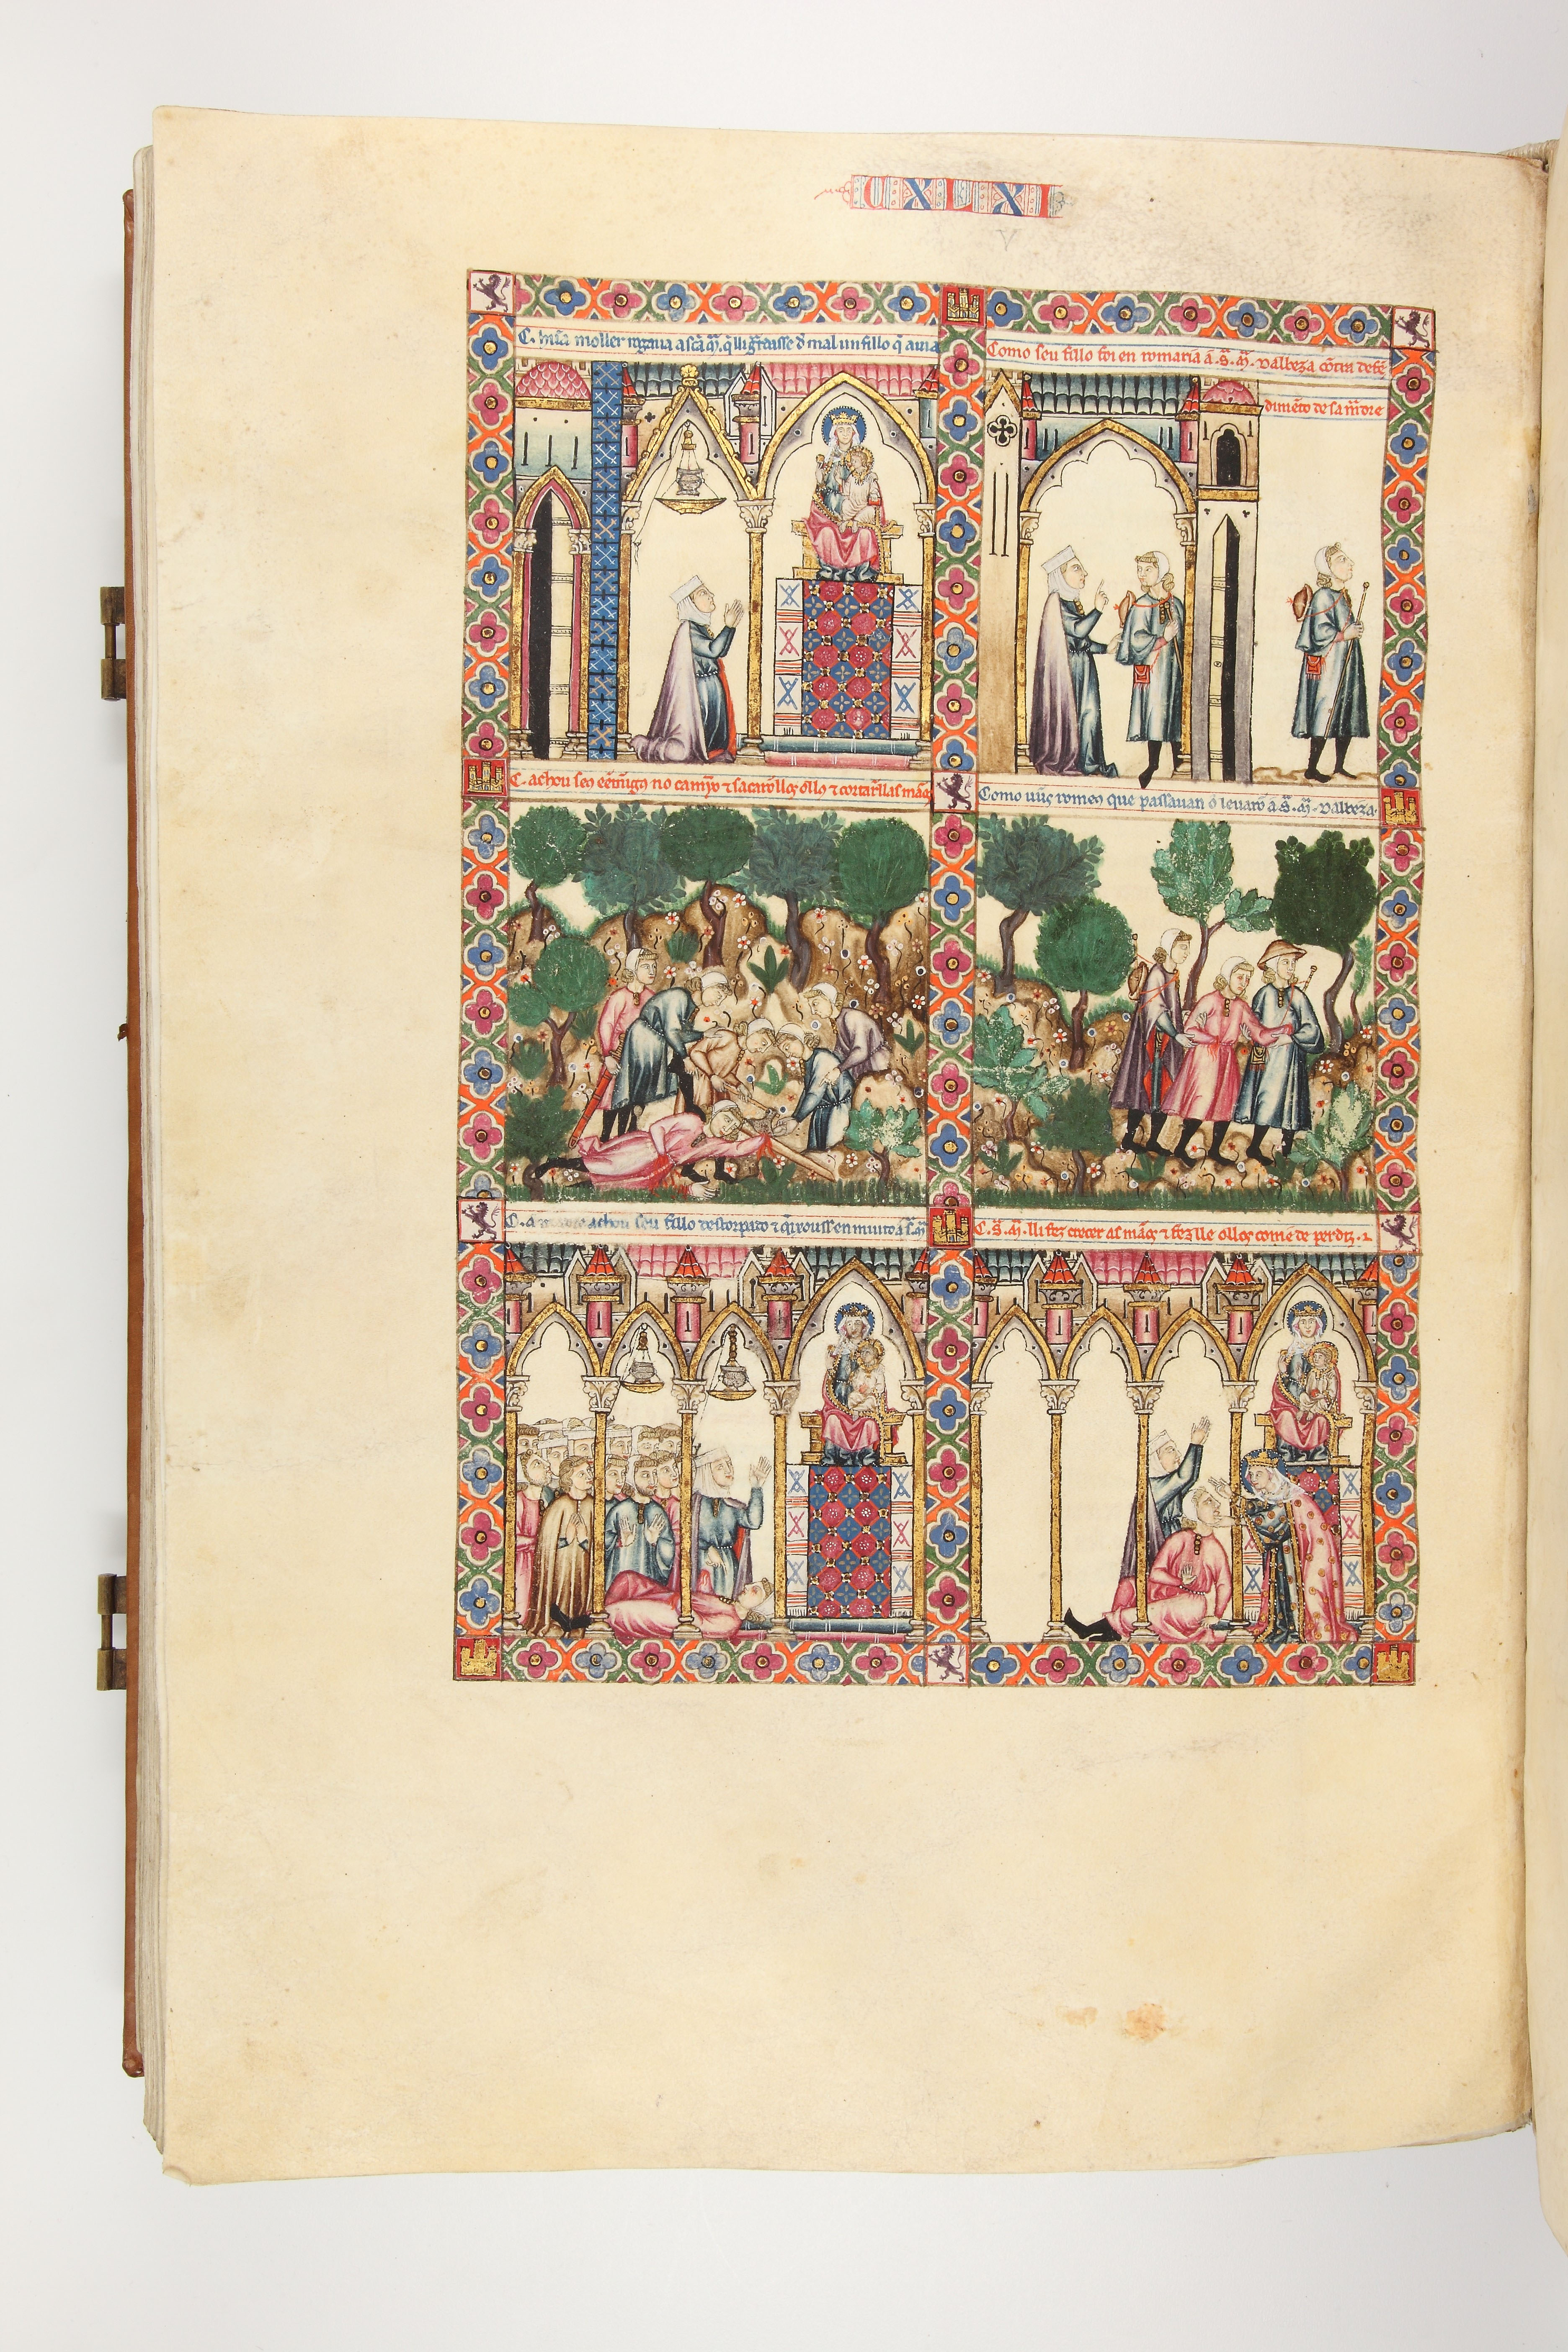 CXLXI
V
C. hũa moller rogaua a scã m̃. q̃ lli g̃rdasse d̃ mal un fillo q̃ auia
Como seu fillo foi en romaria a .s̃. m̃. dalbeza cõtra defẽ
dimẽto de sa madre
C. achou seus ẽemigos no camỹo ⁊ sacarõ llos ollos ⁊ cortarõ llas mãos
Como ũus romeus que passauan o leuarõ a .s̃. m̃. dalbeza.
C. a madre achou seu fillo destorpado ⁊ q̃ixouss en muito a .s̃. m̃.
C. s̃. m̃. lli fez crecer as mãos ⁊ fez lle ollos come de perdiz.